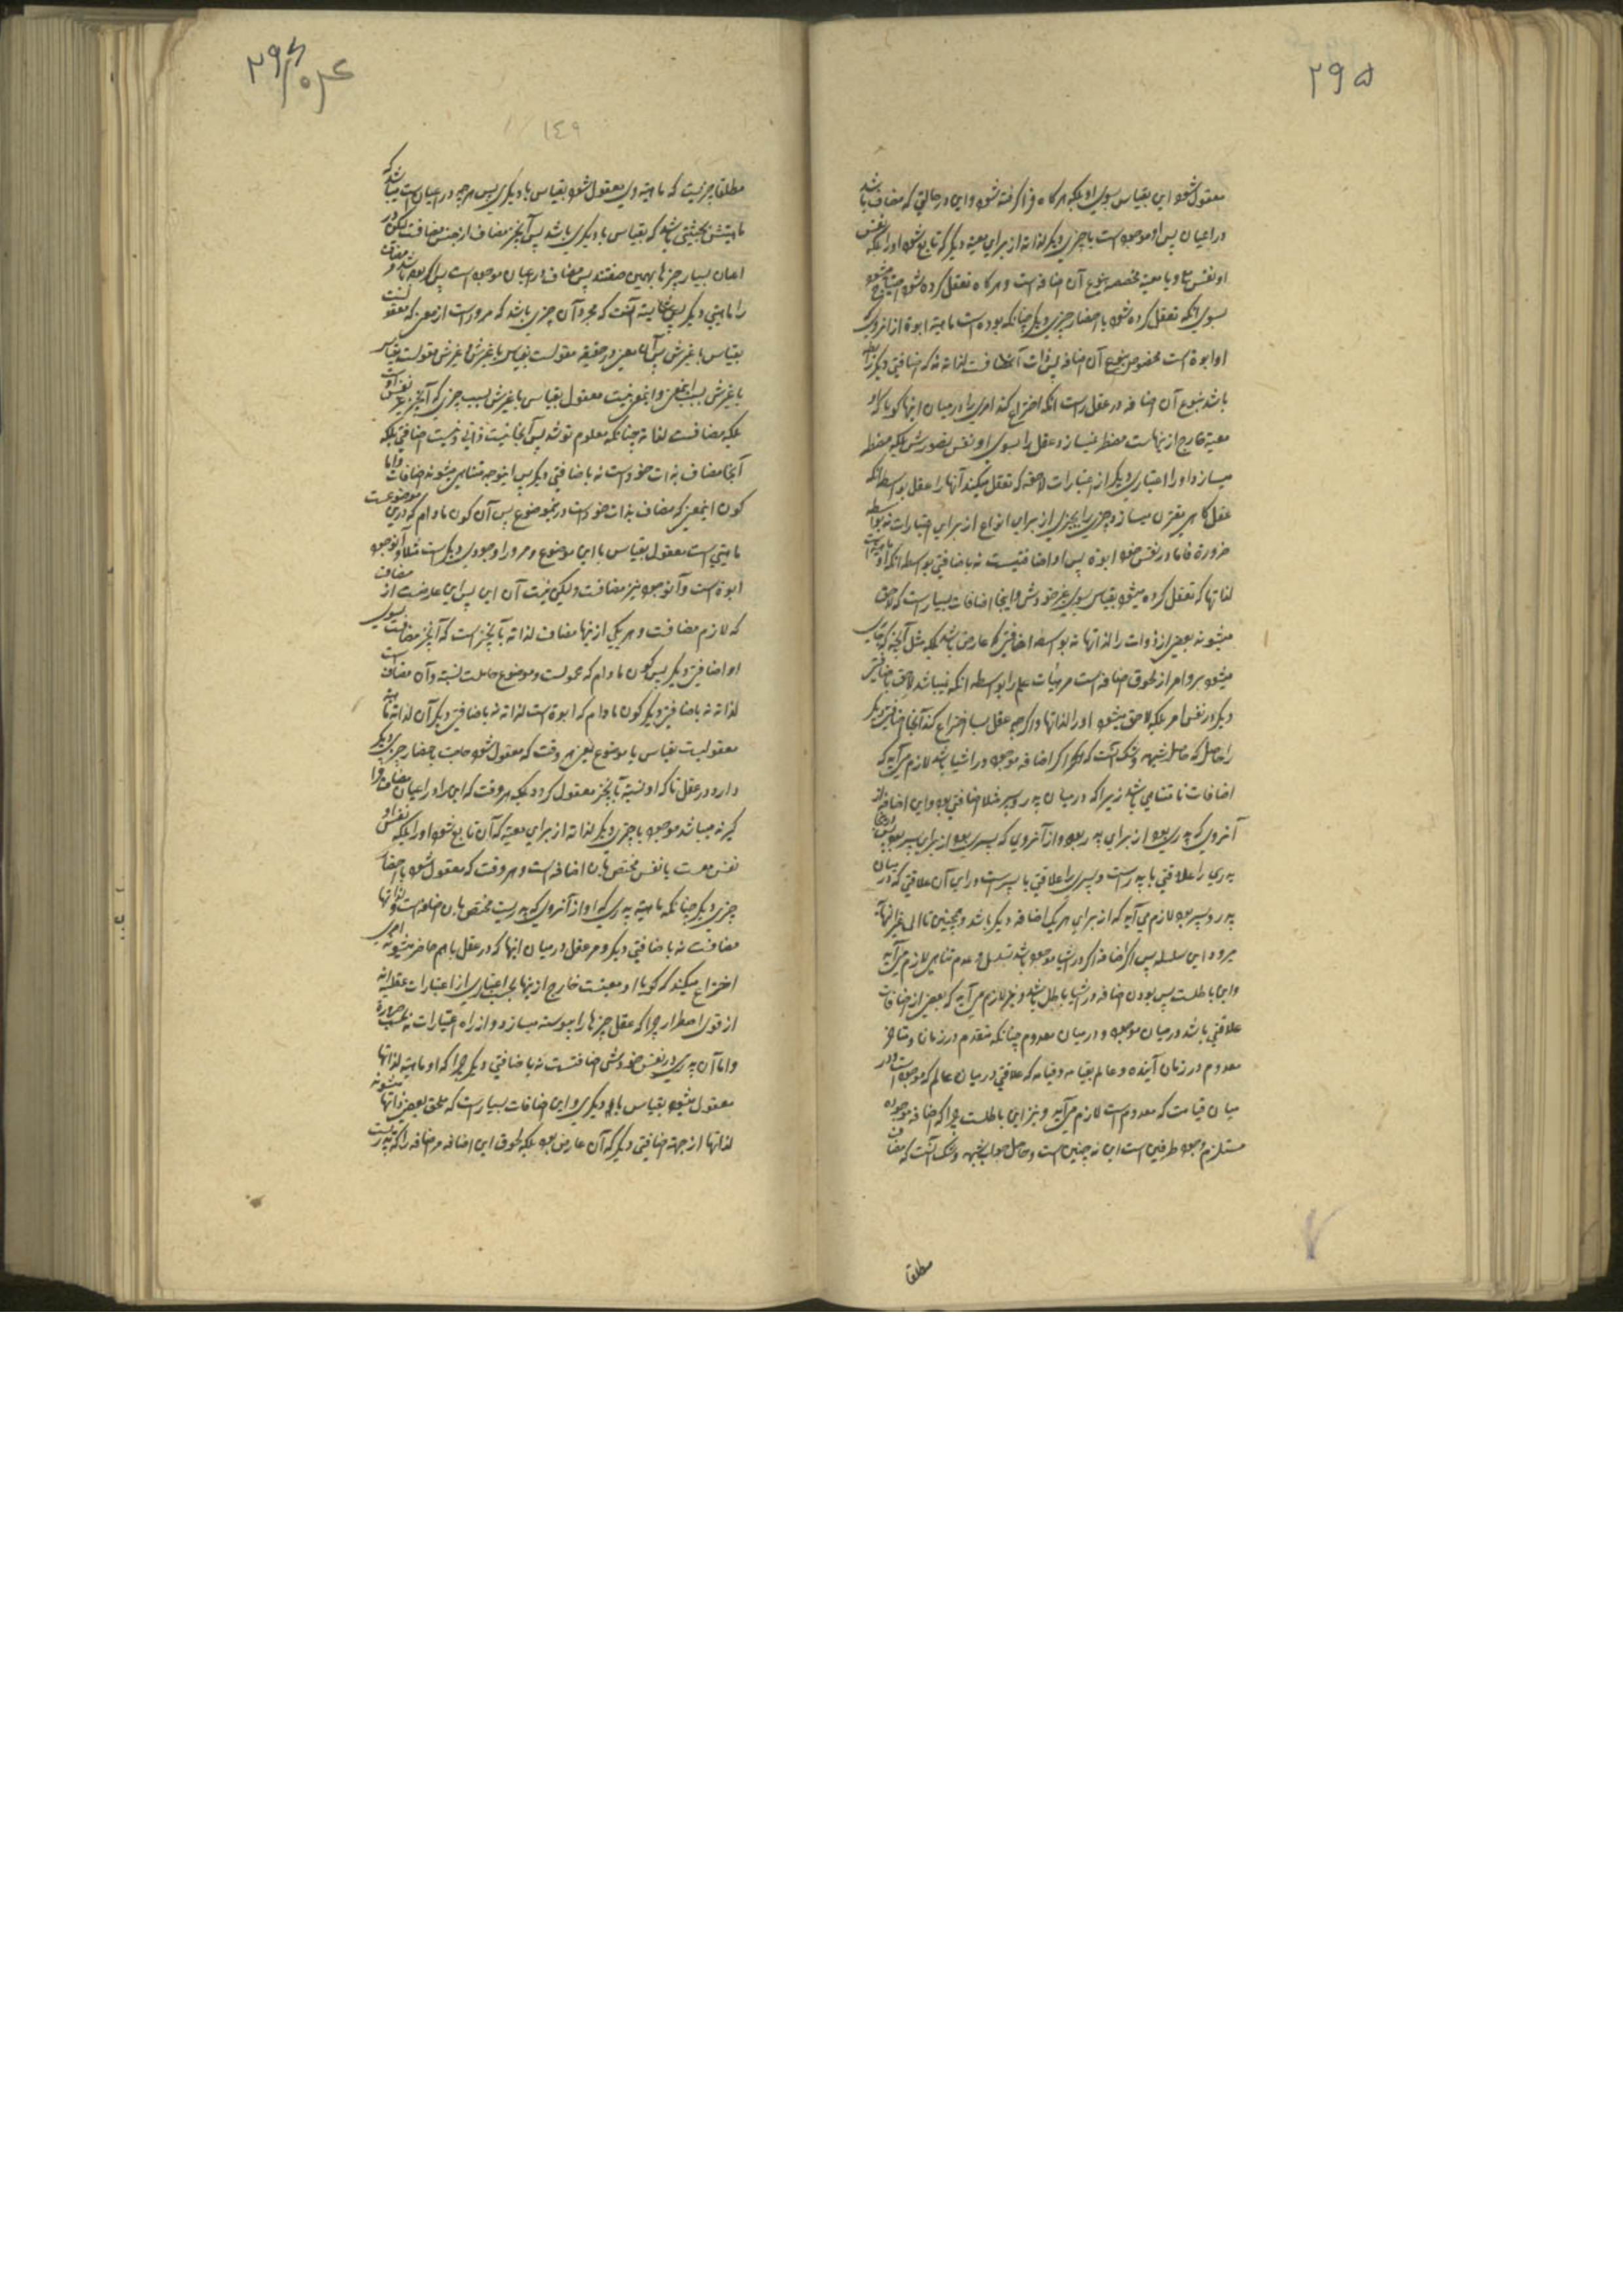 ۲۹۵
معقول شود این بقیاس بسوی او بلکه هرگاه فرا گرفته شود و این در حالتی که مضاف باشد
در اعیان پس او موجود است با چیزی دیگر لذاته از برای معیة دیگر که تابع شود او را بلکه نفس
او نفس مع و یا معیة مخصصه بنوع آن اضافه است و هرگاه تعقل کرده شود احتیاج میشود
بسوی آنکه تعقل کرده شود با احضار چیزی دیگر چنانکه بوده است ماهیة ابوة از انروی که
او ابوة است مخصوص بنوع آن اضافه پس ذات آن مضافست لذاته نه که اضافتی دیگر رابط
باشد بنوع آن اضافه در عقل راست آنکه اختراع کند امری را در میان اینها گویا که او
معیة خارج ازینهاست مضطر نمیسازد عقل را بسوی او نفس تصورش بلکه مضطر
میسازد او را اعتباری دیگر از اعتبارات لاحقه که تعقل میکند آنها را عقل بواسطه آنکه
عقل گاهی مقترن میسازد چیزی را بچیزی از برای انواع از برای اعتبارات نه بواسطه
ضرورة فاما در نفس خود ابوة پس او اضافتیست نه باضافتی بواسطه آنکه او ماهیت است
لذاتها که تعقل کرده میشود بقیاس بسوی غیر خودش و اینجا اضافات بسیار است که لاحق
میشوند بعضی از ذوات را لذاتها نه بواسطه اضافتی که عارض باشد بلکه مثل آنچه که جاری
میشود بر او امر از لحوق اضافه است مر هیئات علم را بواسطه آنکه نمیباشد لاحق باضافتی
دیگر در نفس امر بلکه لاحق میشود او را لذاتها و اگر چه عقل بسا اختراع کند آنجا اضافتی دیگر
را حاصل که حاصل شبهه و شک آنست که اگر اضافه موجود در اشیا باشد لازم می آید که
اضافات نامتناهی باشد زیرا که در میان پدر و پسر مثلا اضافتی بود و این اضافه از
آنروی که پدری بود از برای پدر بود و از آنروی که پسری بود از برای پسر بود
پدری را علاقتی با پدر است و پسری را علاقتی با پسر است ورای آن علاقتی که در میان
پدر و پسر بود لازم می آید که از برای هر یک اضافه دیگر باشد و همچنین تا الی غیر النهایة
میرود این سلسله پس اگر اضافه در اشیا موجود باشد تسلسل و عدم تناهی لازم می آید
و این باطلست پس بودن اضافه در اشیا باطل باشد و نیز لازم می آید که بعضی از اضافات
علاقتی باشد در میان موجود و در میان معدوم چنانکه متقدم در زمان و متأخر
معدوم در زمان آینده و عالم بقیامه و قیامه که علاقتی در میان عالم که موجود است و در
میان قیامت که معدوم است لازم می آید و نیز این باطلست چرا که اضافه موجوده
مستلزم وجود طرفین است این نه چنین است و حاصل جواب شبهه و شک آنست که مضاف
مطلقا
۲۹۶
۱٤۹
مطلقا چیزیست که ماهیة وی معقول شود بقیاس با دیگری پس هر چه در اعیان است میباشد که
ماهیتش بحیثیتی باشد که بقیاس با دیگری باشد پس آن چیز مضاف از جنس مضافست لیکن در
اعیان بسیار چیزها بهمین صفتند پس مضاف در اعیان موجود است پس اگر بوده باشد مر مضاف
را ماهیتی دیگر پس شایسته آنست که مجرد آن چیزی باشد که مرور است از معنی که معقولست
بقیاس با غیرش پس آن معنی در حقیقه معقولست بقیاس با غیرش و غیرش معقولست بقیاس
با غیرش بسبب این معنی و این معنی نیست معقول بقیاس با غیرش بسبب چیزی که آن چیز غیر نفس اوست
بلکه مضافست لذاته چنانکه معلوم تو شد پس آنجا نیست ذاتی و نیست اضافتی بلکه
آنجا مضاف بذات خود است نه باضافتی دیگر پس اینوجه متناهی میشوند اضافات و اما
کون این معنی که مضاف بذات خود است در موضوع پس آن کون مادام که در این موضوعست
ماهیتی است معقول بقیاس با این موضوع و مر او را وجودی دیگر است مثلا و آن وجود
ابوة است و آن وجود نیز مضافست ولیکن نیست آن این پس این عارضست از مضاف
که لازم مضافست و هر یکی ازینها مضاف لذاته بآن چیز است که آن چیز مضافست بسوی
او اضافتی دیگر پس کون مادام که محمولست و موضوع حاملست نسبة و آن مضاف است
لذاته نه باضافتی دیگر کون مادام که ابوة است لذاته نه باضافتی دیگر آن لذاته ماهیة
معقولیت بقیاس با موضوع یعنی هر وقت که معقول شود حاجت باحضار چیزی دیگر
دارد در عقل تا که او نسبة بآن چیز معقول گردد بلکه هر وقت که این را در اعیان مضاف فرا
گیرند میباشد موجود با چیزی دیگر لذاته از برای معیة که آن تابع شود او را بلکه نفس او
نفس معست یا نفس مختص بان اضافه است و هر وقت که معقول شود باحضار
چیزی دیگر چنانکه ماهیة پدری که او از آنروی که پدریست مختص بان اضافه است و لذاتها
مضافست نه باضافتی دیگر و مر عقل در میان اینها که در عقل باهم حاضر میشوند امری
اختراع میکند که گویا او معیتست خارج ازینها بحسب اعتباری از اعتبارات عقلیه نه
از قوی اضطرار چرا که عقل چیزها را پیوسته میسازد و از راه اعتبارات نه بحسب ضرورة
و اما آن پدری در نفس خودش اضافتست نه باضافتی دیگر چرا که او ماهیة لذاتها
معقول میشود بقیاس با دیگری و این اضافات بسیار است که ملحق بعضی ذاتها میشوند
لذاتها از جهة اضافتی دیگر که آن عارض بود بلکه لحوق این اضافه مر اضافه را که پدریست